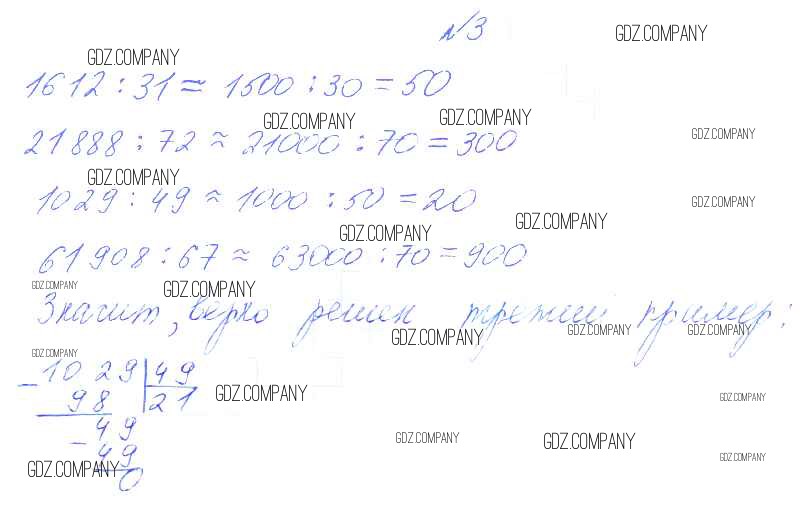 №3
GDZ.COMPANY
GDZ.COMPANY
1612 : 31 ≈ 1500 : 30 = 50
GDZ.COMPANY
GDZ.COMPANY
GDZ.COMPANY
21888 : 72 ≈ 21000 : 70 = 300
GDZ.COMPANY
GDZ.COMPANY
1029 : 49 ≈ 1000 : 50 = 20
GDZ.COMPANY
GDZ.COMPANY
61908 : 67 ≈ 63000 : 70 = 900
GDZ.COMPANY
GDZ.COMPANY
Значит, верно решен третий пример:
GDZ.COMPANY
GDZ.COMPANY
GDZ.COMPANY
GDZ.COMPANY
− 1029 | 49
98 | 21
GDZ.COMPANY
GDZ.COMPANY
− 49
GDZ.COMPANY
GDZ.COMPANY
49
GDZ.COMPANY
GDZ.COMPANY
0